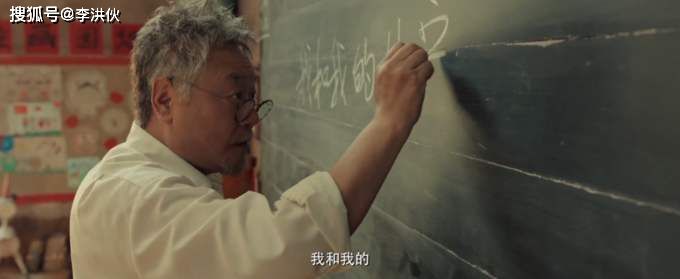 搜狐号@李洪伙
我和我的
我和我的